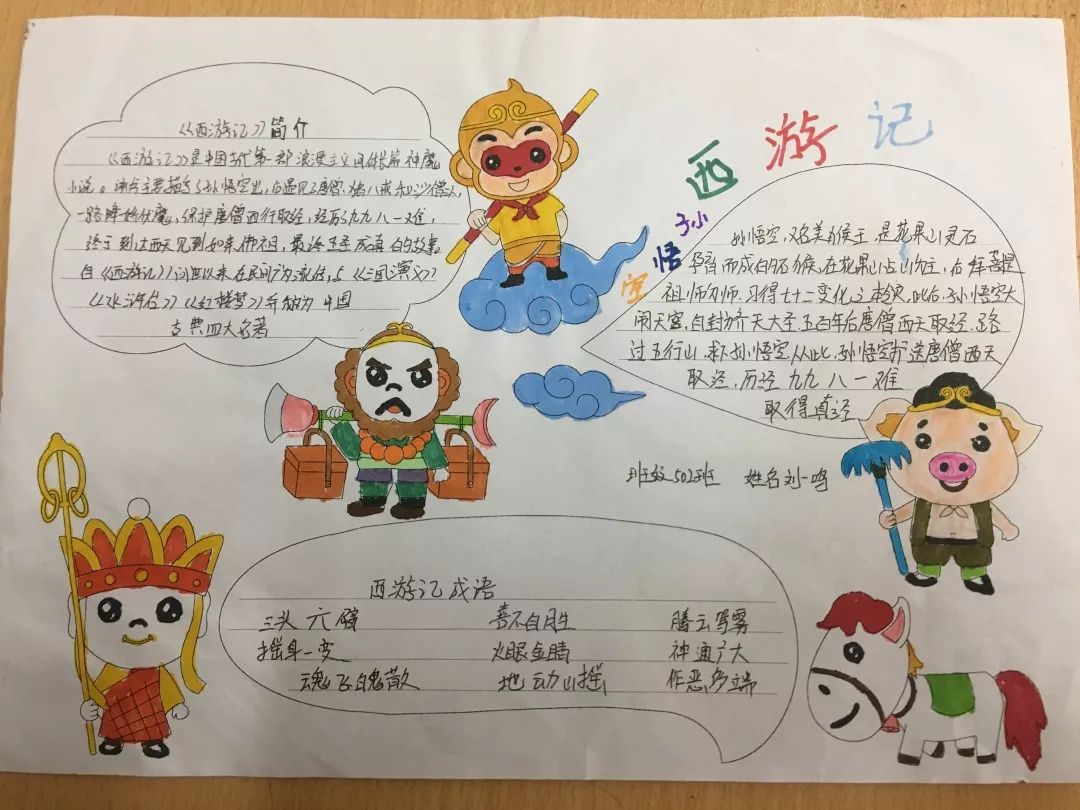 西游记
《西游记》简介
《西游记》是中国古代第一部浪漫主义风格长篇神魔
小说。该书主要描写了孙悟空出世后遇见了唐僧、猪八戒和沙僧三人,
一路降妖伏魔,保护唐僧西行取经,经历九九八一难,
终于到达西天见到如来佛祖,最终五圣成真的故事。
自《西游记》问世以来在民间广为流传,与《三国演义》
《水浒传》《红楼梦》并称为中国
古典四大名著
孙悟空
孙悟空,又名美猴王,是花果山灵石
孕育而成的石猴,在花果山占山为王,后拜菩提
祖师为师,习得七十二变化之本领,此后,孙悟空大
闹天宫,自封为齐天大圣,五百年后唐僧西天取经,路
过五行山,救下孙悟空,从此,孙悟空护送唐僧西天
取经,历经九九八一难
取得真经
班级502班 姓名刘一鸣
西游记成语
三头六臂 喜不自胜 腾云驾雾
摇身一变 火眼金睛 神通广大
魂飞魄散 地动山摇 作恶多端